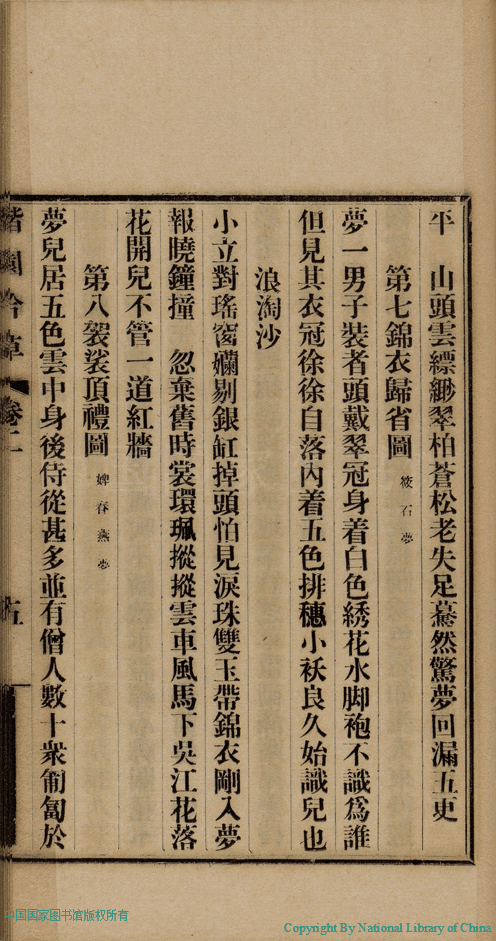 平　山頭雲縹緲翠柏蒼松老失足驀然驚夢回漏五更
第七錦衣歸省圖 筱石夢
夢一男子裝者頭戴翠冠身着白色綉花水脚袍不識爲誰
但見其衣冠徐徐自落内着五色排穗小袄良久始識兒也
浪淘沙
小立對瑤窗嬾剔銀缸掉頭怕見淚珠雙玉帶錦衣剛入夢
報曉鐘撞　忽棄舊時裳環珮摐摐雲車風馬下吳江花落
花開兒不管一道紅牆
第八袈裟頂禮圖 婢春燕夢
夢兒居五色雲中身後侍從甚多並有僧人數十衆匍匐於
卷二
五
中国国家图书馆版权所有
Copyright By National Library of China